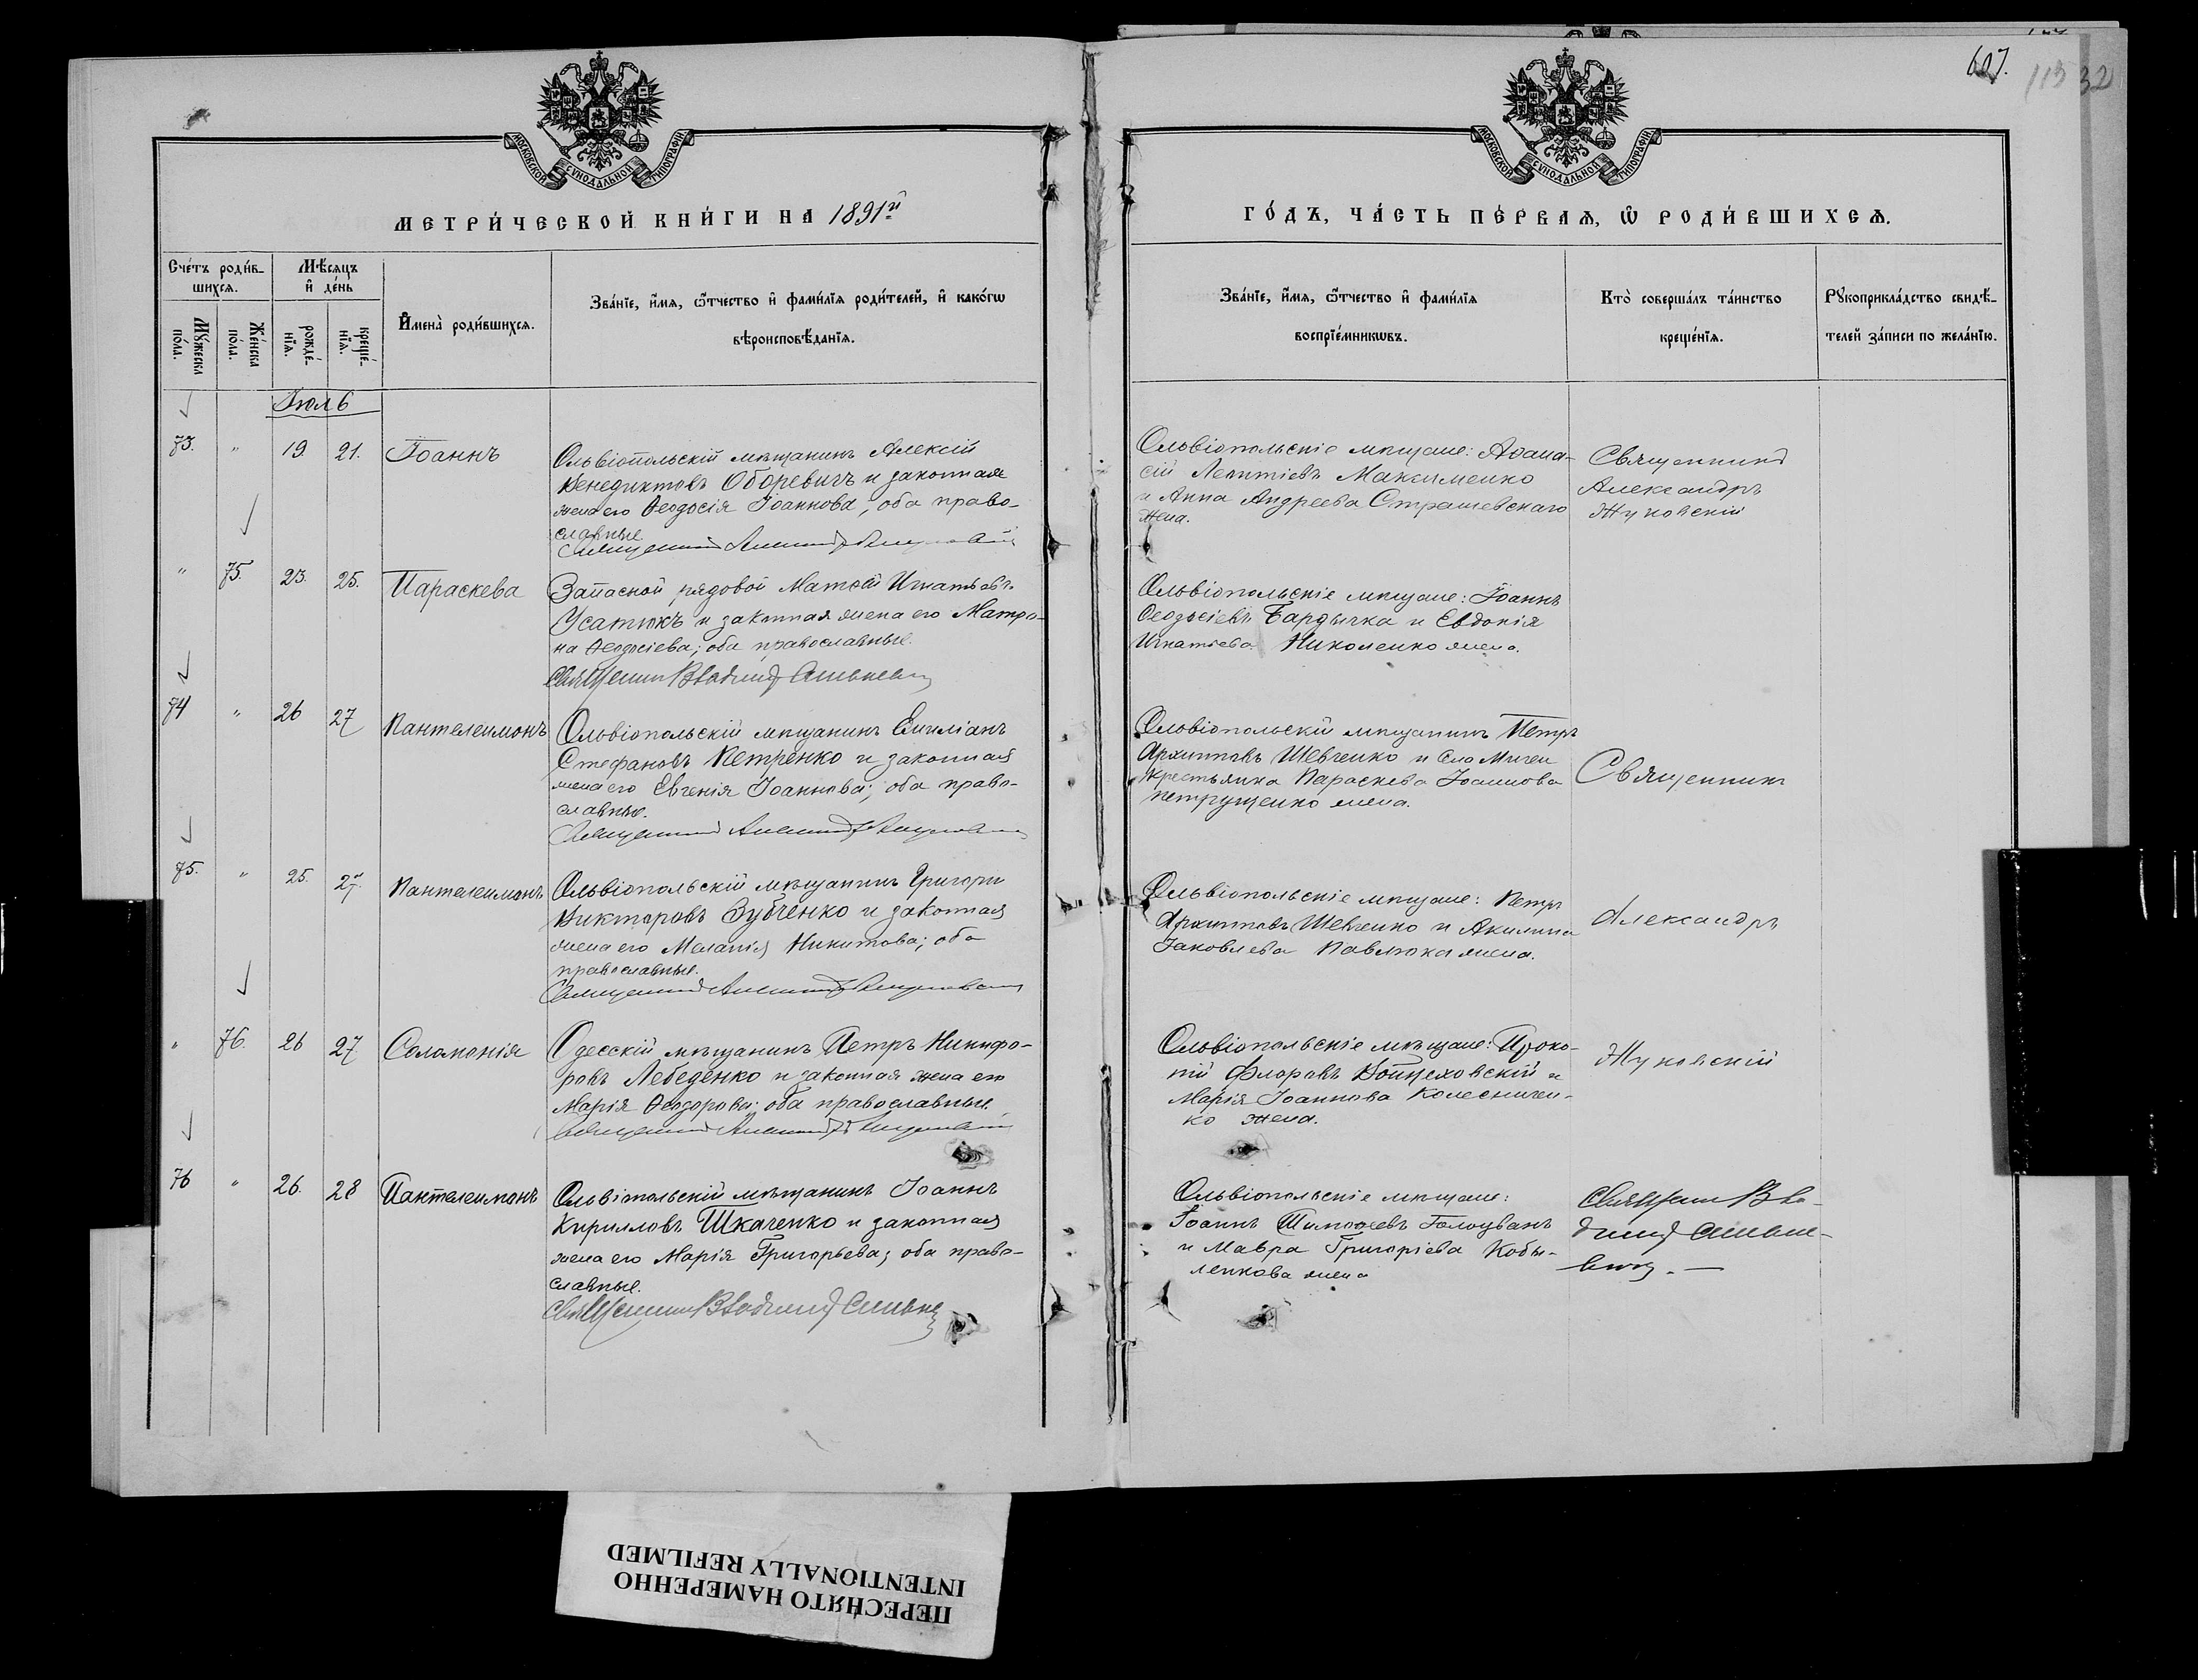 607.
113 32
МОСКОВСКОЙ СѴНОДАЛЬНОЙ ТИПОГРАФІИ
МОСКОВСКОЙ СѴНОДАЛЬНОЙ ТИПОГРАФІИ
МЕТРИ́ЧЕСКОЙ КНИ́ГИ НА 1891й
ГО́ДЪ, ЧА́СТЬ ПЕ́РВАѦ, Ѡ҆ РОДИ́ВШИХСѦ.
Сче́тъ роди́в-
шихсѧ.
Мѣ́сѧцъ
и҆ де́нь
Мꙋ́жеска
по́ла.
Же́нска
по́ла.
рожде́-
нїѧ.
креще́-
нїѧ.
И҆мена̀ роди́вшихсѧ.
Зва́нїе, и҆́мѧ, ѻ҆́тчество и҆ фами́лїѧ роди́телей, и҆ како́гѡ
вѣроисповѣ́данїѧ.
Зва́нїе, и҆́мѧ, ѻ҆́тчество и҆ фами́лїѧ
воспрїе́мникѡвъ.
Кто̀ соверша́лъ та́инство
креще́нїѧ.
Рꙋкоприкла́дство свидѣ́-
телей за́писи по жела́нїю.
Іюль
73. " 19. 21. Іоаннъ
Ольвіопольскій мѣщанинъ Алексій
Венедиктовъ Оборевичъ и законная
жена его Ѳеодосія Іоаннова; оба право-
славные.
Священникъ Александръ Жуковскій
Ольвіопольскіе мѣщане: Аѳана-
сій Леонтіевъ Максименко
и Анна Андреева Страшевскаго
жена.
Священникъ
Александръ
Жуковскій
" 75. 23. 25. Параскева
Запасной рядовой Матѳей Игнатьевъ
Усатюкъ и законная жена его Матро-
на Ѳеодосіева; оба православные.
Священникъ Владимір
Ольвіопольскіе мѣщане: Іоаннъ
Ѳеодосіевъ Бардычка и Евдокія
Игнатіева Николенко жена.
74 " 26 27 Пантелеимонъ
Ольвіопольскій мѣщанинъ Емиліанъ
Стефановъ Петренко и законная
жена его Евгенія Іоаннова; оба право-
славные.
Священникъ Александръ Жуковскій
Ольвіопольскій мѣщанинъ Петръ
Архиповъ Шевченко и
Крестьянка Параскева Іоаннова
Петрущенко жена.
Священникъ
75. " 25. 27. Пантелеимонъ
Ольвіопольскій мѣщанинъ Григорій
Викторовъ Зубченко и законная
жена его Меланія Никитова; оба
православные.
Священникъ Александръ Жуковскій
Ольвіопольскіе мѣщане: Петръ
Архиповъ Шевченко и Акилина
Іаковлева Павлюка жена.
Александръ
" 76. 26 27 Соломонія
Одесскій мѣщанинъ Петръ Никифо-
ровъ Лебеденко и законная жена его
Марія Ѳеодорова; оба православные.
Священникъ Александръ Жуковскій
Ольвіопольскіе мѣщане: Проко-
пій Флоровъ Войцеховскій и
Марія Іоаннова Колесничен-
ко жена.
Жуковскій
76 " 26. 28 Пантелеимонъ
Ольвіопольскій мѣщанинъ Іоаннъ
Кирилловъ Шкаченко и законная
жена его Марія Григорьева; оба право-
славные.
Священникъ Владимір
Ольвіопольскіе мѣщане:
Іоаннъ Тимоѳеевъ Голоуванъ
и Мавра Григоріева Кобы-
ленкова жена
Священникъ Вла-
димір
ПЕРЕСНЯТО НАМЕРЕННО
INTENTIONALLY REFILMED